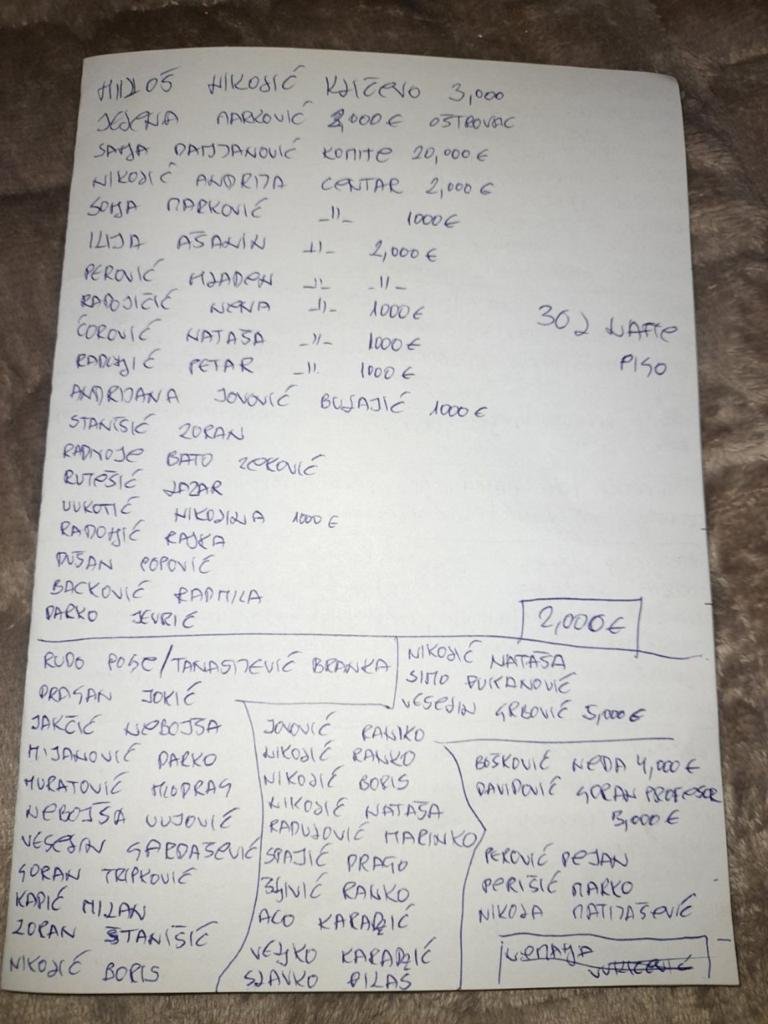 MILOŠ NIKOLIĆ KLIČEVO 3,000
JELENA MARKOVIĆ 2,000€ OSTROVAC
SANJA DAMJANOVIĆ KOMITE 20,000€
NIKOLIĆ ANDRIJA CENTAR 2,000€
SONJA MARKOVIĆ -II- 1000€
ILIJA AŠANIN -II- 2,000€
PEROVIĆ MLADEN -II- -II-
RADOJIČIĆ NENA -II- 1000€
ĆOROVIĆ NATAŠA -II- 1000€
RADOJIĆ PETAR -II- 1000€
30 L NAFTE
PISO
ANDRIJANA JOVOVIĆ BULAJIĆ 1000€
STANIŠIĆ ZORAN
RADIVOJE BATO ZEKOVIĆ
RUTEŠIĆ LAZAR
VUKOTIĆ NIKOLINA 1000€
RADOJIĆ RAJKA
DUŠAN POPOVIĆ
BACKOVIĆ RADMILA
DARKO JEVRIĆ
2,000€
RUĐO POSE/TANASIJEVIĆ BRANKA
DRAGAN JOKIĆ
JAKŠIĆ NEBOJŠA
MIJANOVIĆ DARKO
MURATOVIĆ MIODRAG
NEBOJŠA VUJOVIĆ
VESELIN GARDAŠEVIĆ
GORAN TRIPKOVIĆ
KADIĆ MILAN
ZORAN STANIŠIĆ
NIKOLIĆ BORIS
NIKOLIĆ NATAŠA
SIMO ĐUKANOVIĆ
VESELIN GRBOVIĆ 5,000€
JOVOVIĆ RANKO
NIKOLIĆ RANKO
NIKOLIĆ BORIS
NIKOLIĆ NATAŠA
RADULOVIĆ MARINKO
SPAJIĆ DRAGO
RANKO
ACO KARADŽIĆ
VELJKO KARADŽIĆ
SLAVKO PILAŠ
BOŠKOVIĆ NEDA 4,000€
DAVIDOVIĆ GORAN PROFESOR
3,000€
PEROVIĆ DEJAN
PERIŠIĆ MARKO
NIKOLA MATIJAŠEVIĆ
NEMANJA